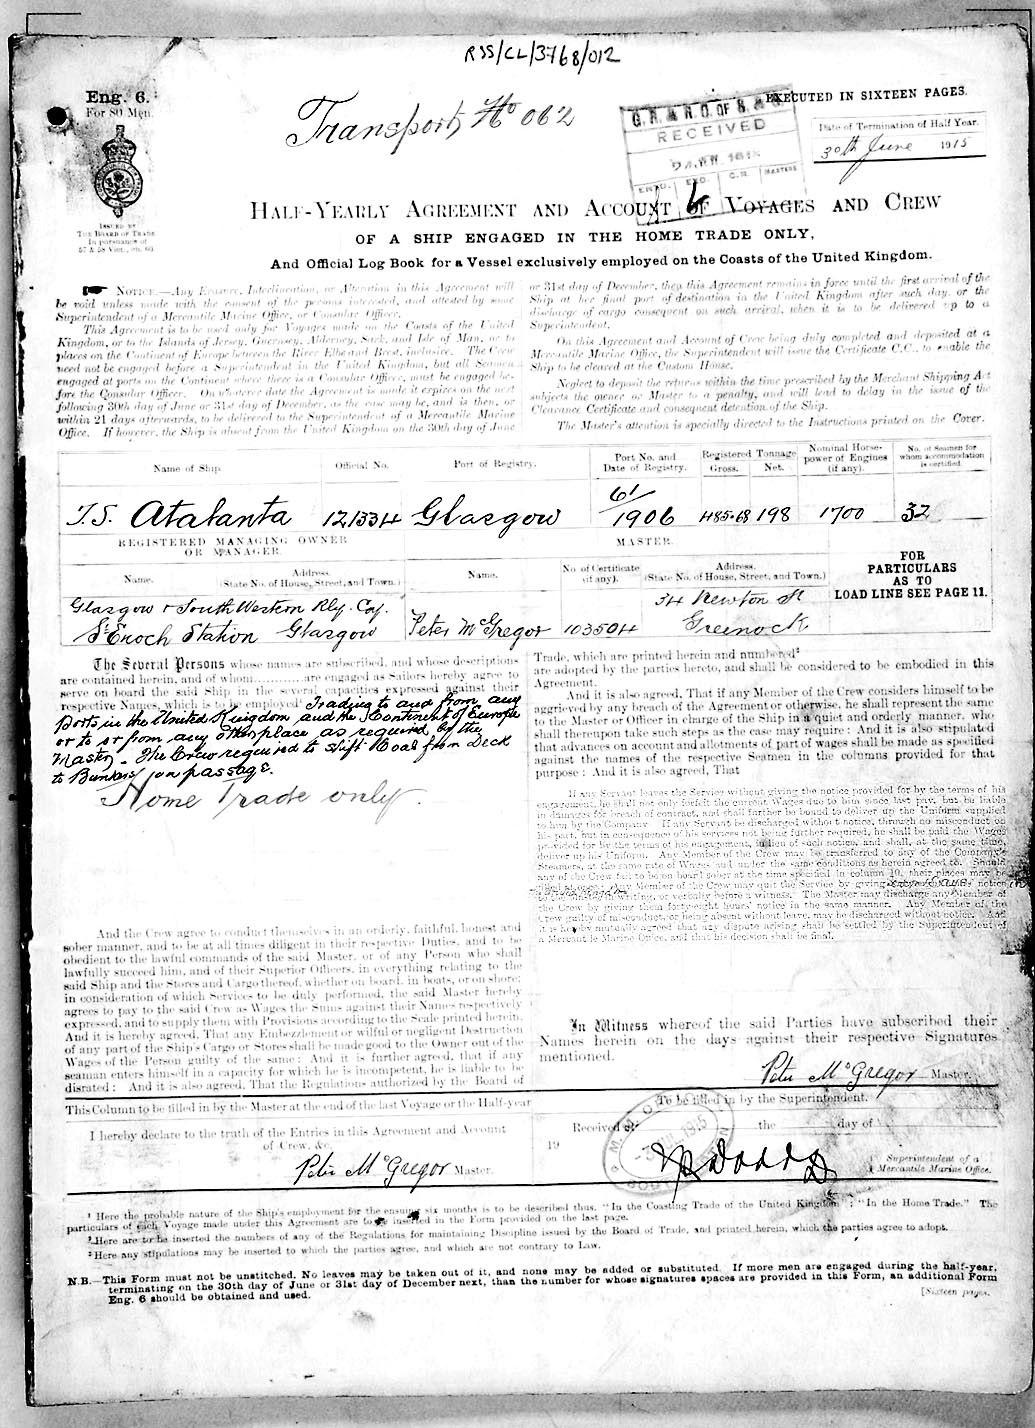 RSS/CL/3768/012
Eng. 6.
For 80 Men.
Transport No 062
EXECUTED IN SIXTEEN PAGES.
RECEIVED
Date of Termination of Half Year.
30th June 1915
ISSUED BY
THE BOARD OF TRADE
In pursuance of
57 & 58 Vict., ch. 60.
6
HALF-YEARLY AGREEMENT AND ACCOUNT OF VOYAGES AND CREW
OF A SHIP ENGAGED IN THE HOME TRADE ONLY,
And Official Log Book for a Vessel exclusively employed on the Coasts of the United Kingdom.
NOTICE.—Any Erasure, Interlineation, or Alteration in this Agreement will
be void unless made with the consent of the persons interested, and attested by some
Superintendent of a Mercantile Marine Office, or Consular Officer.
This Agreement is to be used only for Voyages made on the Coasts of the United
Kingdom, or to the Islands of Jersey, Guernsey, Alderney, Sark, and Isle of Man, or to
places on the Continent of Europe between the River Elbe and Brest, inclusive. The Crew
need not be engaged before a Superintendent in the United Kingdom, but all Seamen
engaged at ports on the Continent where there is a Consular Officer, must be engaged be-
fore the Consular Officer. On whatever date the Agreement is made it expires on the next
following 30th day of June or 31st day of December, as the case may be, and is then, or
within 21 days afterwards, to be delivered to the Superintendent of a Mercantile Marine
Office. If however, the Ship is absent from the United Kingdom on the 30th day of June
or 31st day of December, then this Agreement remains in force until the first arrival of the
Ship at her final port of destination in the United Kingdom after such day, or the
discharge of cargo consequent on such arrival, when it is to be delivered up to a
Superintendent.
On this Agreement and Account of Crew being duly completed and deposited at a
Mercantile Marine Office, the Superintendent will issue the Certificate C.C., to enable the
Ship to be cleared at the Custom House.
Neglect to deposit the returns within the time prescribed by the Merchant Shipping Act
subjects the owner or Master to a penalty, and will lead to delay in the issue of the
Clearance Certificate and consequent detention of the Ship.
The Master's attention is specially directed to the Instructions printed on the Cover.
Name of Ship. Official No. Port of Registry. Port No. and Date of Registry. Registered Tonnage Gross. Net. Nominal Horse-power of Engines (if any). No. of Seamen for whom accommodation is certified.
T.S. Atalanta 121334 Glasgow 61/1906 485.68 198 1700 32
REGISTERED MANAGING OWNER
OR MANAGER.
MASTER.
Name. Address. (State No. of House, Street, and Town.) Name. No. of Certificate (if any). Address. (State No. of House, Street, and Town.)
FOR
PARTICULARS
AS TO
LOAD LINE SEE PAGE 11.
Glasgow & South Western Rly. Coy.
St Enoch Station Glasgow
Peter McGregor 103504
34 Newton St
Greenock
The Several Persons whose names are subscribed, and whose descriptions
are contained herein, and of whom............are engaged as Sailors hereby agree to
serve on board the said Ship in the several capacities expressed against their
respective Names, which is to be employed Trading to and from any
Ports in the United Kingdom and the Continent of Europe
or to or from any other place as required by the
Master. The Crew required to shift Coal from Deck
to Bunkers on passage.
Home Trade only.
And the Crew agree to conduct themselves in an orderly, faithful, honest and
sober manner, and to be at all times diligent in their respective Duties, and to be
obedient to the lawful commands of the said Master, or of any Person who shall
lawfully succeed him, and of their Superior Officers, in everything relating to the
said Ship and the Stores and Cargo thereof, whether on board, in boats, or on shore;
in consideration of which Services to be duly performed, the said Master hereby
agrees to pay to the said Crew as Wages the Sums against their Names respectively
expressed, and to supply them with Provisions according to the Scale printed herein.
And it is hereby agreed, That any Embezzlement or wilful or negligent Destruction
of any part of the Ship's Cargo or Stores shall be made good to the Owner out of the
Wages of the Person guilty of the same: And it is further agreed, that if any
seaman enters himself in a capacity for which he is incompetent, he is liable to be
disrated: And it is also agreed, That the Regulations authorized by the Board of
Trade, which are printed herein and numbered²
are adopted by the parties hereto, and shall be considered to be embodied in this
Agreement.
And it is also agreed, That if any Member of the Crew considers himself to be
aggrieved by any breach of the Agreement or otherwise, he shall represent the same
to the Master or Officer in charge of the Ship in a quiet and orderly manner, who
shall thereupon take such steps as the case may require: And it is also stipulated
that advances on account and allotments of part of wages shall be made as specified
against the names of the respective Seamen in the columns provided for that
purpose: And it is also agreed, That
If any Servant leaves the Service without giving the notice provided for by the terms of his
engagement, he shall not only forfeit the current Wages due to him since last pay, but be liable
in damages for breach of contract, and shall further be bound to deliver up the Uniform supplied
to him by the Company. If any Servant be discharged without notice, through no misconduct on
his part, but in consequence of his services not being further required, he shall be paid the Wages
provided for by the terms of his engagement, in lieu of such notice, and shall, at the same time,
deliver up his Uniform. Any Member of the Crew may be transferred to any of the Company's
Steamers, at the same rate of Wages and under the same conditions as herein agreed to. Should
any of the Crew fail to be on board sober at the time specified in column 10, their places may be
Any Member of the Crew may quit the Service by giving notice
to the Master in writing, or verbally before a witness. The Master may discharge any Member of
the Crew by giving them forty-eight hours' notice in the same manner. Any Member of the
Crew guilty of misconduct, or being absent without leave, may be discharged without notice. And
it is hereby mutually agreed that any dispute arising shall be settled by the Superintendent of
a Mercantile Marine Office, and that his decision shall be final.
In Witness whereof the said Parties have subscribed their
Names herein on the days against their respective Signatures
mentioned.
Peter McGregor Master.
This Column to be filled in by the Master at the end of the last Voyage or the Half-year
To be filled in by the Superintendent.
I hereby declare to the truth of the Entries in this Agreement and Account
of Crew, &c.
Peter McGregor Master.
Received at the day of
19
Superintendent of a
Mercantile Marine Office.
¹ Here the probable nature of the Ship's employment for the ensuing six months is to be described thus, "In the Coasting Trade of the United Kingdom"; "In the Home Trade." The
particulars of each Voyage made under this Agreement are to be inserted in the Form provided on the last page.
² Here are to be inserted the numbers of any of the Regulations for maintaining Discipline issued by the Board of Trade, and printed herein, which the parties agree to adopt.
³ Here any stipulations may be inserted to which the parties agree, and which are not contrary to Law.
N.B.—This Form must not be unstitched. No leaves may be taken out of it, and none may be added or substituted. If more men are engaged during the half-year,
terminating on the 30th day of June or 31st day of December next, than the number for whose signatures spaces are provided in this Form, an additional Form
Eng. 6 should be obtained and used.
[Sixteen pages.